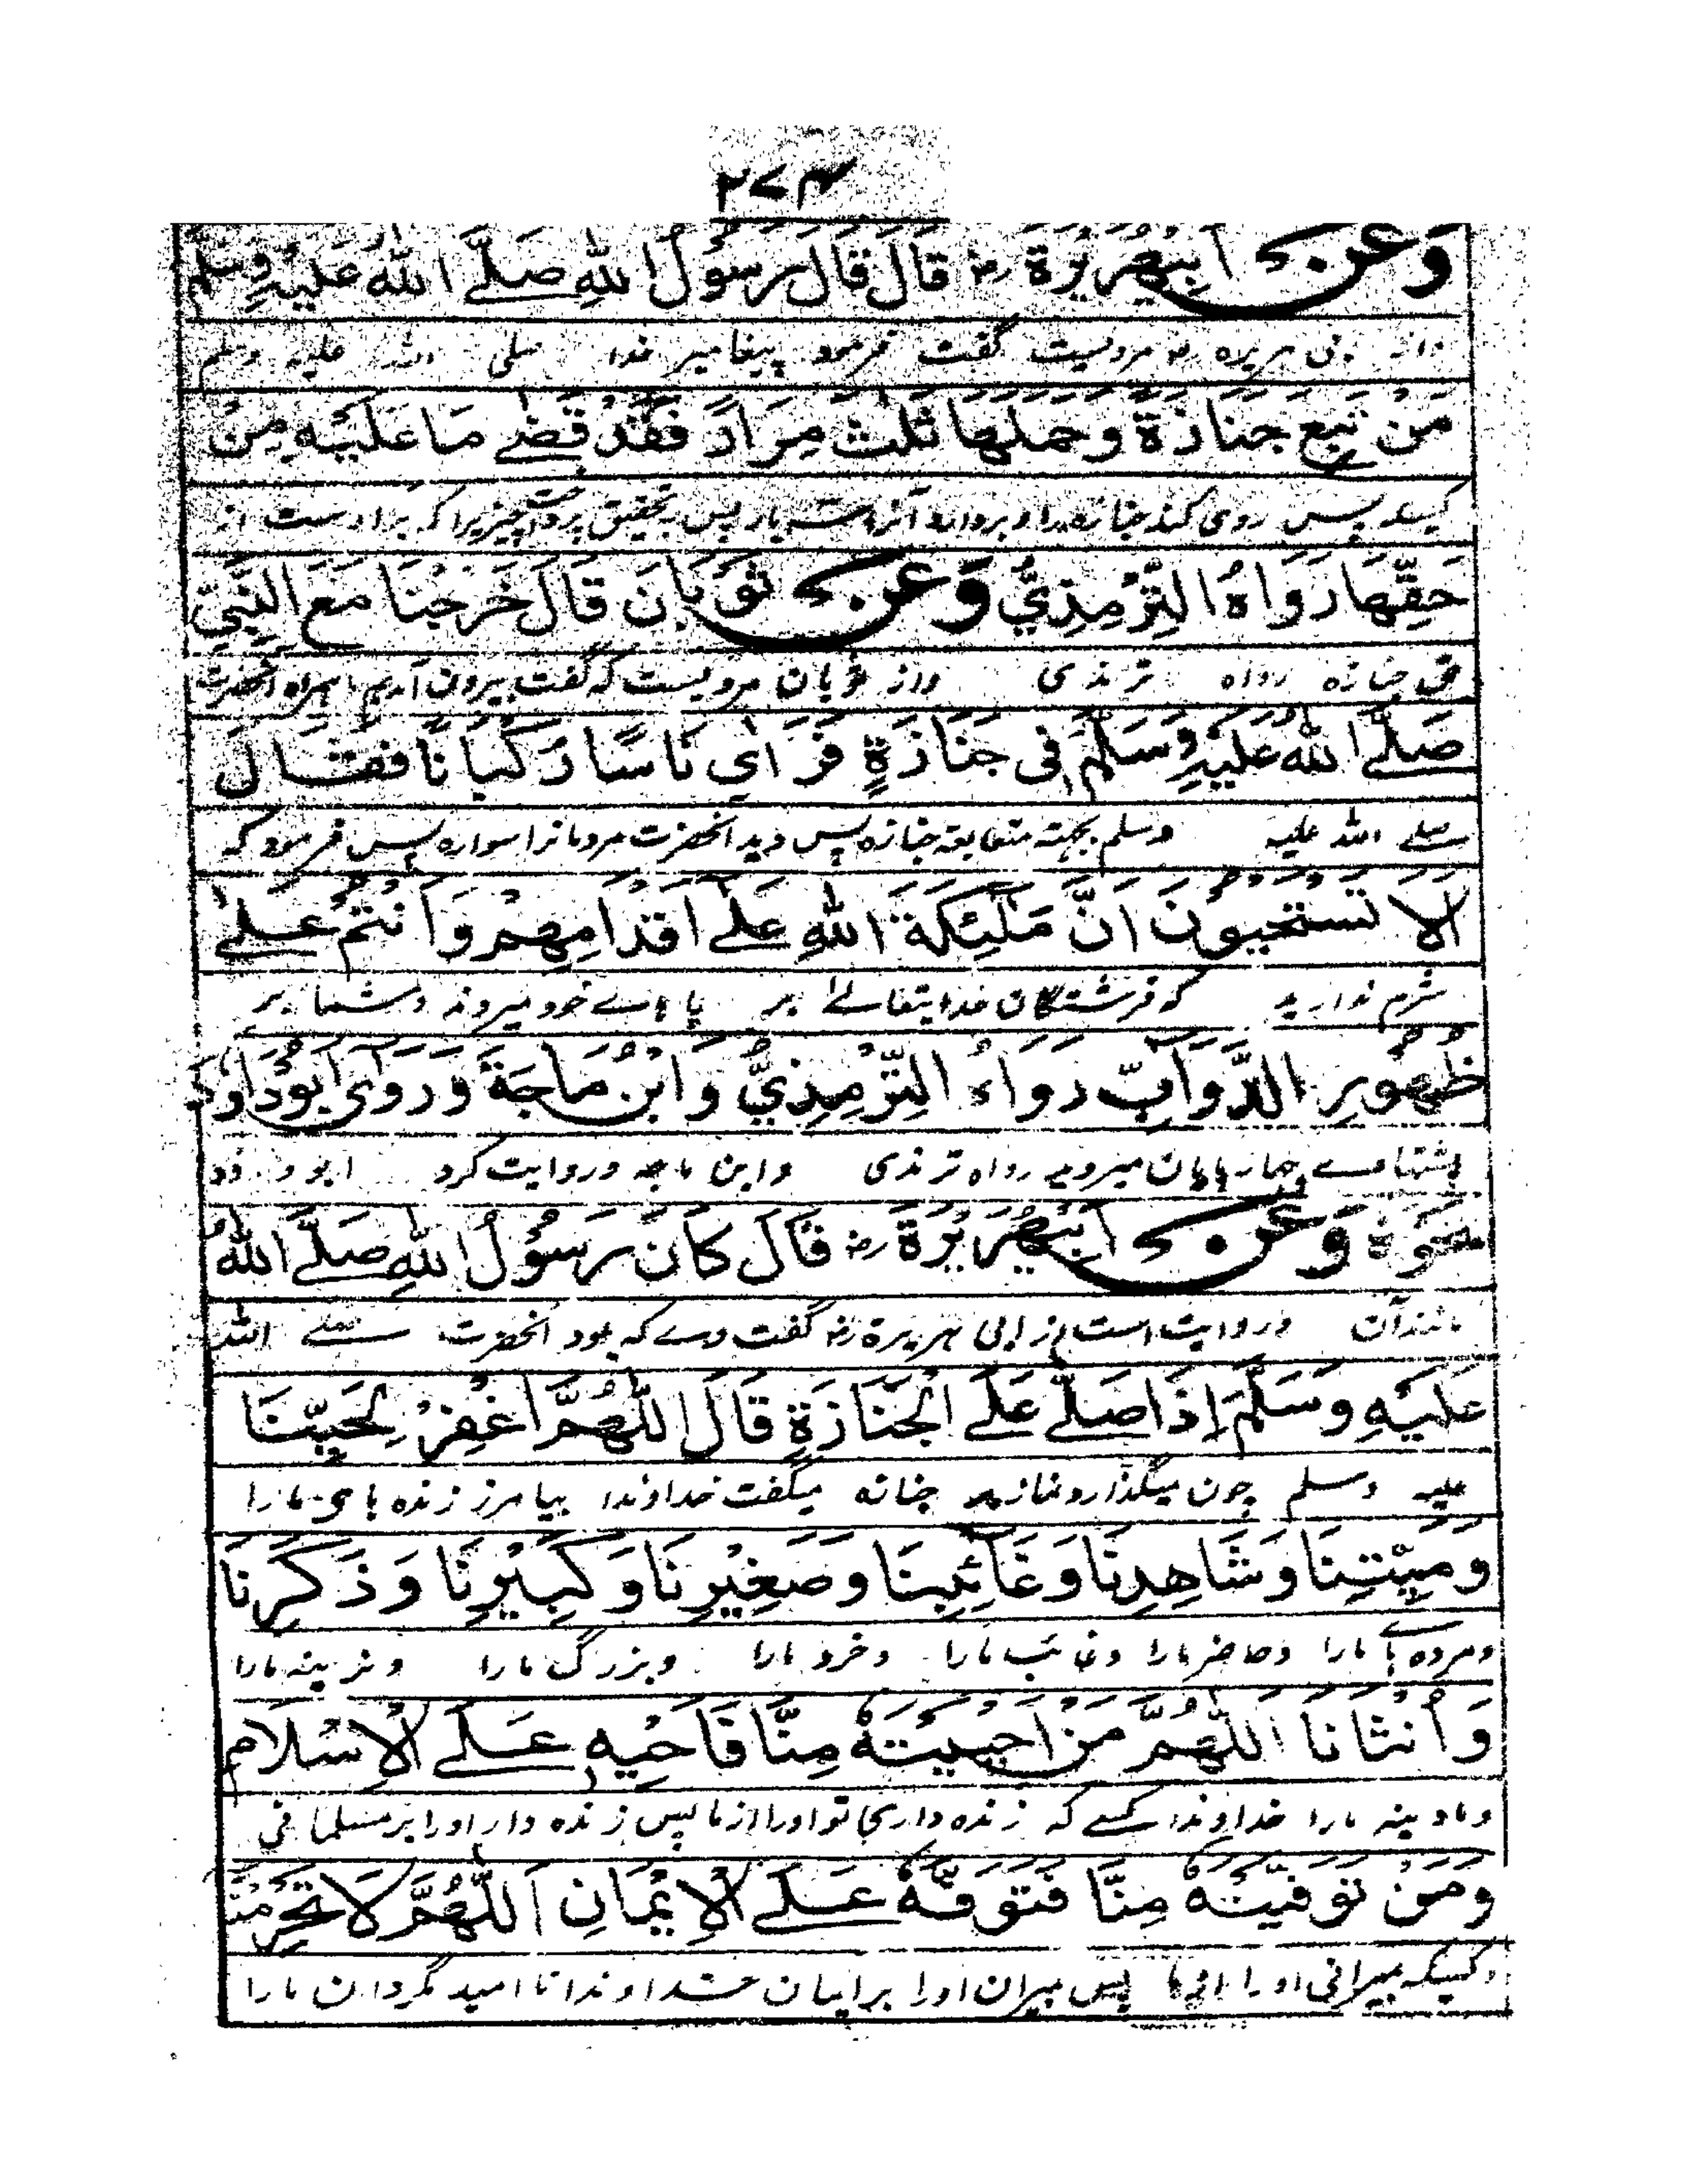 ۲۷۴
وَعَنْ اَبِیْهُرَیْرَةَ رض قَالَ قَالَ رَسُوْلُ اللهِ صَلَّے اللهُ عَلَیْهِ وَسَلَّمَ
هریره رض مرویست گفت فرمود پیغامبر خدا صلی الله علیه وسلم
مَنْ تَبِعَ جَنَازَةً وَحَمَلَهَا ثَلٰثَ مِرَارٍ فَقَدْ قَضٰے مَا عَلَیْهِ مِنْ
کسیکه پس روی کند جنازه را و بردارد آنرا سه بار پس بتحقیق چیزیرا که بر اوست از
حَقِّهَا رَوَاهُ التِّرْمِذِیُّ وَعَنْ ثَوْبَانَ قَالَ خَرَجْنَا مَعَ النَّبِیِّ
حق جنازه رواه ترمذی واز ثوبان مرویست که گفت بیرون آمدیم همراه آنحضرت
صَلَّے اللهُ عَلَیْهِ وَسَلَّمَ فِی جَنَازَةٍ فَرَاٰی نَاسًا رُکْبَانًا فَقَالَ
صلے الله علیه وسلم بجهته متعابقه جنازه پس دید آنحضرت مردمانرا سواره پس فرمود که
اَلَا تَسْتَحْیُوْنَ اَنَّ مَلٰئِکَةَ اللهِ عَلٰے اَقْدَامِهِمْ وَاَنْتُمْ عَلٰے
شرم ندارید که فرشتگان خدایتعالےٰ بر پاهاے خود میروند و شما بر
ظُهُوْرِ الدَّوَآبِّ رَوَاهُ التِّرْمِذِیُّ وَابْنُ مَاجَةَ وَرَوٰی اَبُوْدَاوُدَ
پشتهاے چارپایان میروید رواه ترمذی وابن ماجه وروایت کرد ابو داود
نَحْوَهٗ وَعَنْ اَبِیْهُرَیْرَةَ رض قَالَ کَانَ رَسُوْلُ اللهِ صَلَّے اللهُ
مانند آن و روایت است از ابی هریرة رض گفت وے که بود آنحضرت صلے الله
عَلَیْهِ وَسَلَّمَ اِذَا صَلّٰے عَلَے الْجَنَازَةِ قَالَ اَللّٰهُمَّ اغْفِرْ لِحَیِّنَا
علیه وسلم چون میگذارد نماز بر جنازه میگفت خداوندا بیامرز زنده هاے مارا
وَمَیِّتِنَا وَشَاهِدِنَا وَغَآئِبِنَا وَصَغِیْرِنَا وَکَبِیْرِنَا وَذَکَرِنَا
ومرده هاے مارا وحاضر مارا وغائب مارا وخرد مارا وبزرگ مارا ونرینه مارا
وَاُنْثَانَا اَللّٰهُمَّ مَنْ اَحْیَیْتَهٗ مِنَّا فَاَحْیِهٖ عَلَے الْاِسْلَامِ
ومادینه مارا خداوندا کسے که زنده داری تو اورا از ما پس زنده دار اورا بر مسلمانی
وَمَنْ تَوَفَّیْتَهٗ مِنَّا فَتَوَفَّهٗ عَلَے الْاِیْمَانِ اَللّٰهُمَّ لَا تَحْرِمْنَا
وکسیکه بمیرانی اورا از ما پس بمیران اورا بر ایمان خداوندا نا امید مگردان مارا